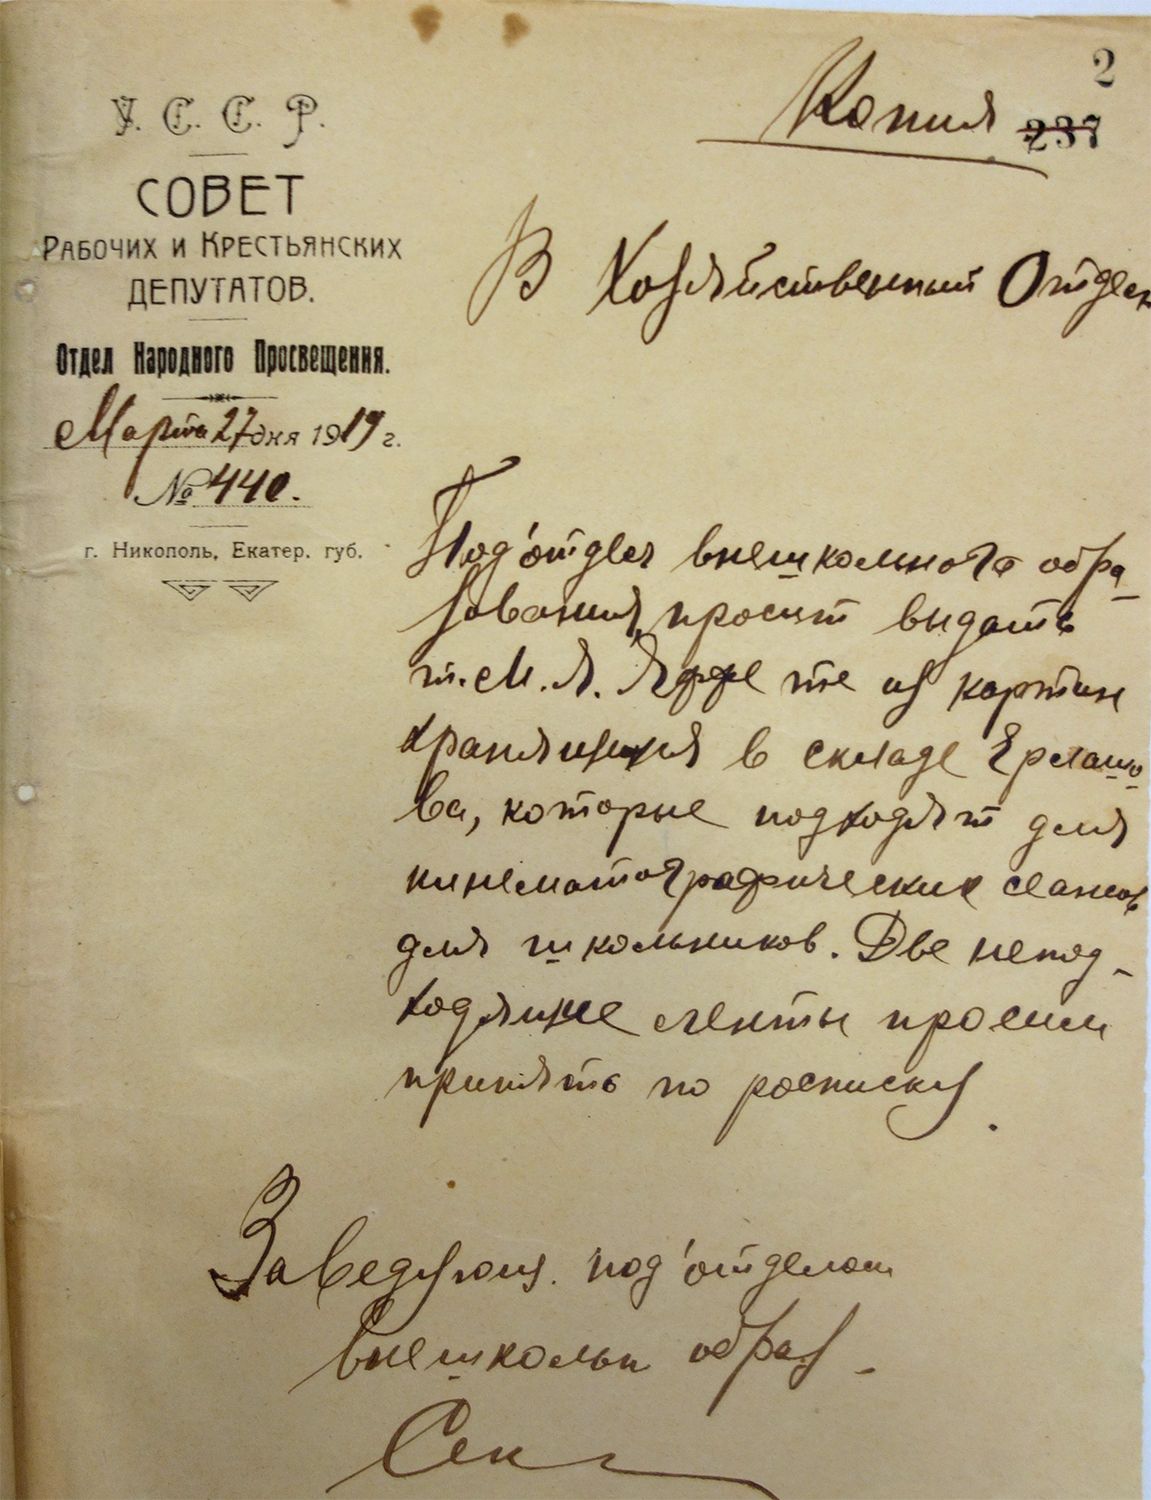 2
Копия
237
У. С. С. Р.
СОВЕТ
РАБОЧИХ И КРЕСТЬЯНСКИХ
ДЕПУТАТОВ.
Отдел Народного Просвещения.
Марта 27 дня 1919 г.
№ 440.
г. Никополь, Екатер. губ.
В Хозяйственный Отдел
Под'отдел внешкольного обра-
зования, просит выдать
т. М. Я. Яффе те из картин
хранящихся в складе Ерлашо-
ва, которые подходят для
кинематографических сеансов
для школьников. Две непод-
ходящие ленты просим
принять по росписку.
Заведующ. под'отделом
внешкольн образ-
Сек